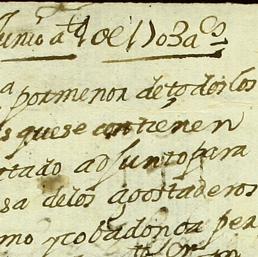 Junio a 19 de 1703 a.s
a pormenor de todos los
s que se contienen
rtado adjunto para
sa delos agostaderos
mo y cobadonga per